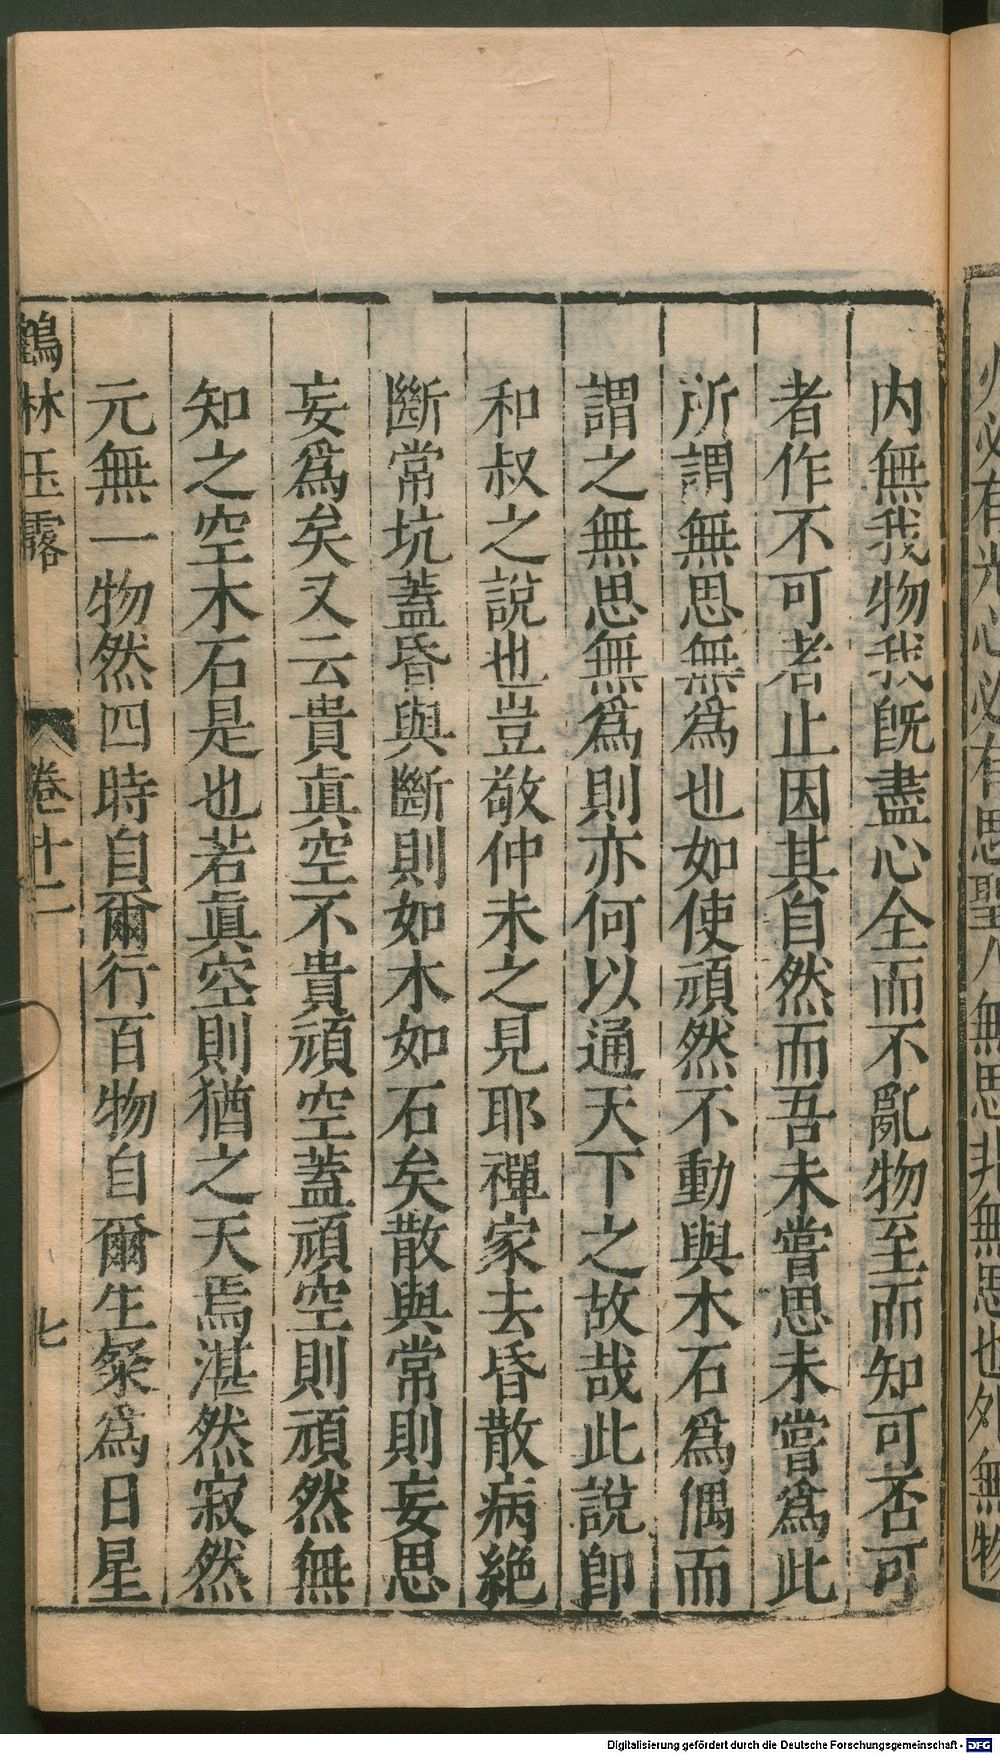 火必有光心必有思聖人無思非無思也外無物
内無我物我既盡心全而不亂物至而知可否可
者作不可者止因其自然而吾未嘗思未嘗爲此
所謂無思無爲也如使頑然不動與木石爲偶而
謂之無思無爲則亦何以通天下之故哉此說卽
和叔之說也豈敬仲未之見耶禪家去昏散病絶
斷常坑蓋昏與斷則如木如石矣散與常則妄思
妄爲矣又云貴眞空不貴頑空蓋頑空則頑然無
知之空木石是也若眞空則猶之天焉湛然寂然
元無一物然四時自爾行百物自爾生粲爲日星
鶴林玉露 卷十二 七
Digitalisierung gefördert durch die Deutsche Forschungsgemeinschaft - DFG